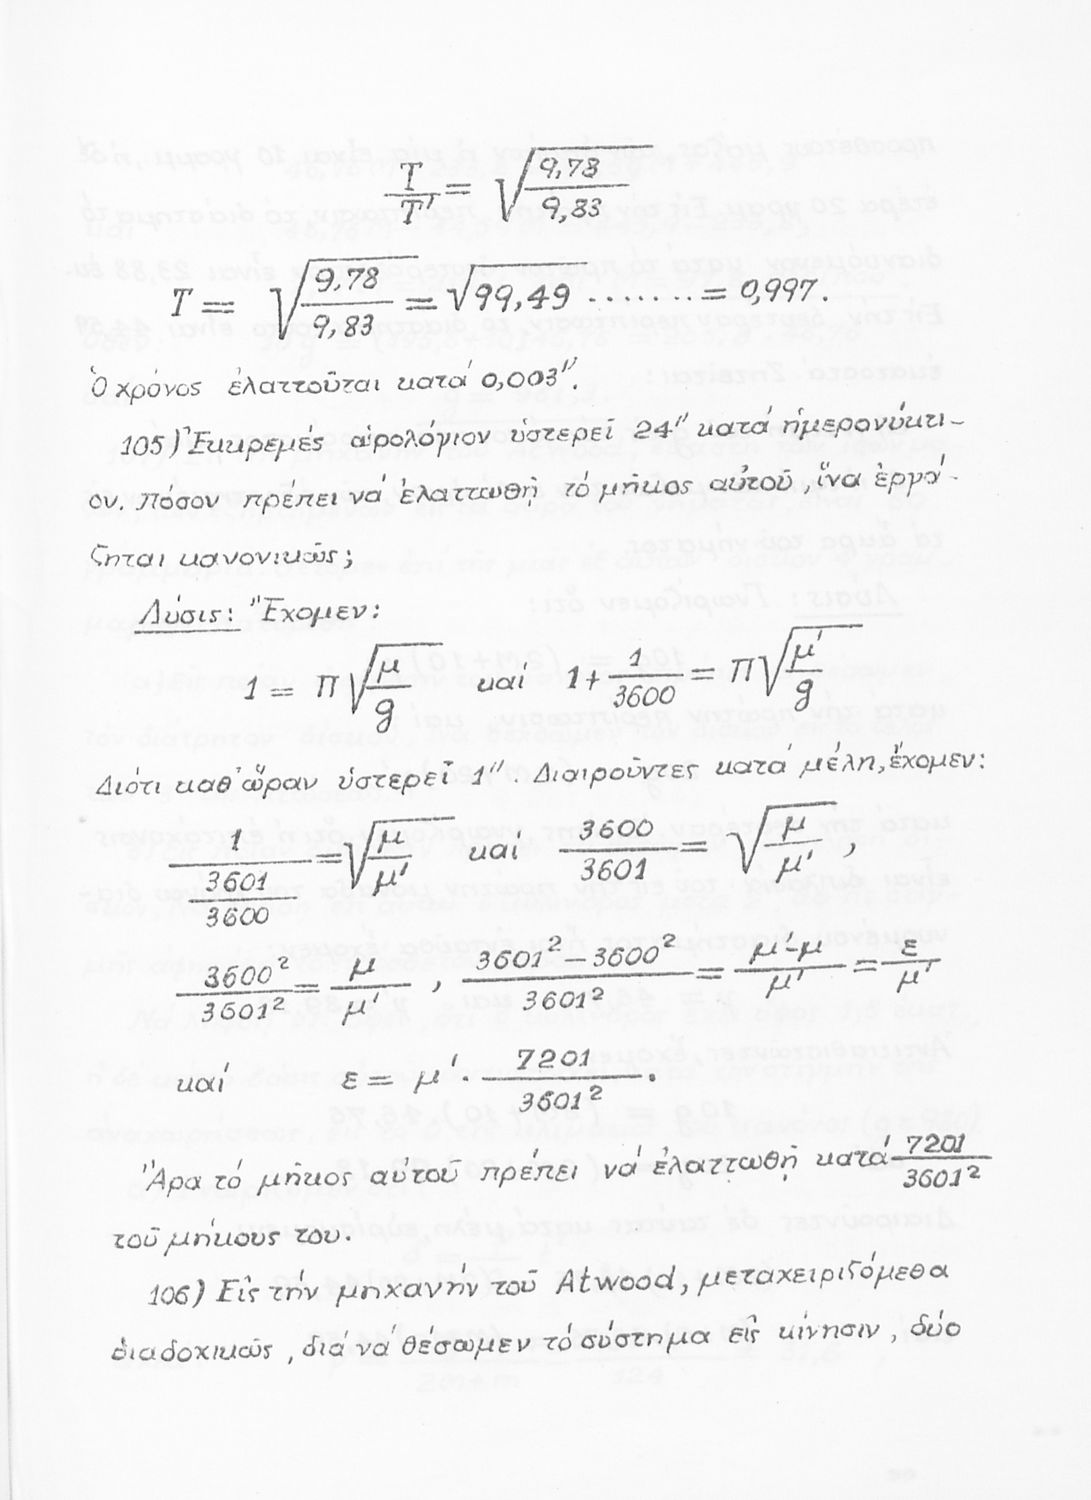 Τ/Τ' = √(9,78/9,83)
Τ = √(9,78/9,83) = √99,49 ........ = 0,997.
Ὁ χρόνος ἐλαττοῦται κατά 0,003''.
105) Ἐκκρεμές ὡρολόγιον ὑστερεῖ 24'' κατά ἡμερονύκτι-
ον. Πόσον πρέπει νά ἐλαττωθῇ τό μῆκος αὐτοῦ, ἵνα ἐργά-
ζηται κανονικῶς;
Λύσις: Ἔχομεν:
1 = Π√(μ/g) καί 1+1/3600 = Π√(μ'/g)
Διότι καθ' ὥραν ὑστερεῖ 1''. Διαιροῦντες κατά μέλη, ἔχομεν:
1/(3601/3600) = √(μ/μ') καί 3600/3601 = √(μ/μ'),
3600²/3601² = μ/μ', (3601²-3600²)/3601² = (μ'-μ)/μ' = ε/μ'
καί ε = μ'·7201/3601².
Ἄρα τό μῆκος αὐτοῦ πρέπει νά ἐλαττωθῇ κατά 7201/3601²
τοῦ μήκους του.
106) Εἰς τήν μηχανήν τοῦ Atwood, μεταχειριζόμεθα
διαδοχικῶς, διά νά θέσωμεν τό σύστημα εἰς κίνησιν, δύο